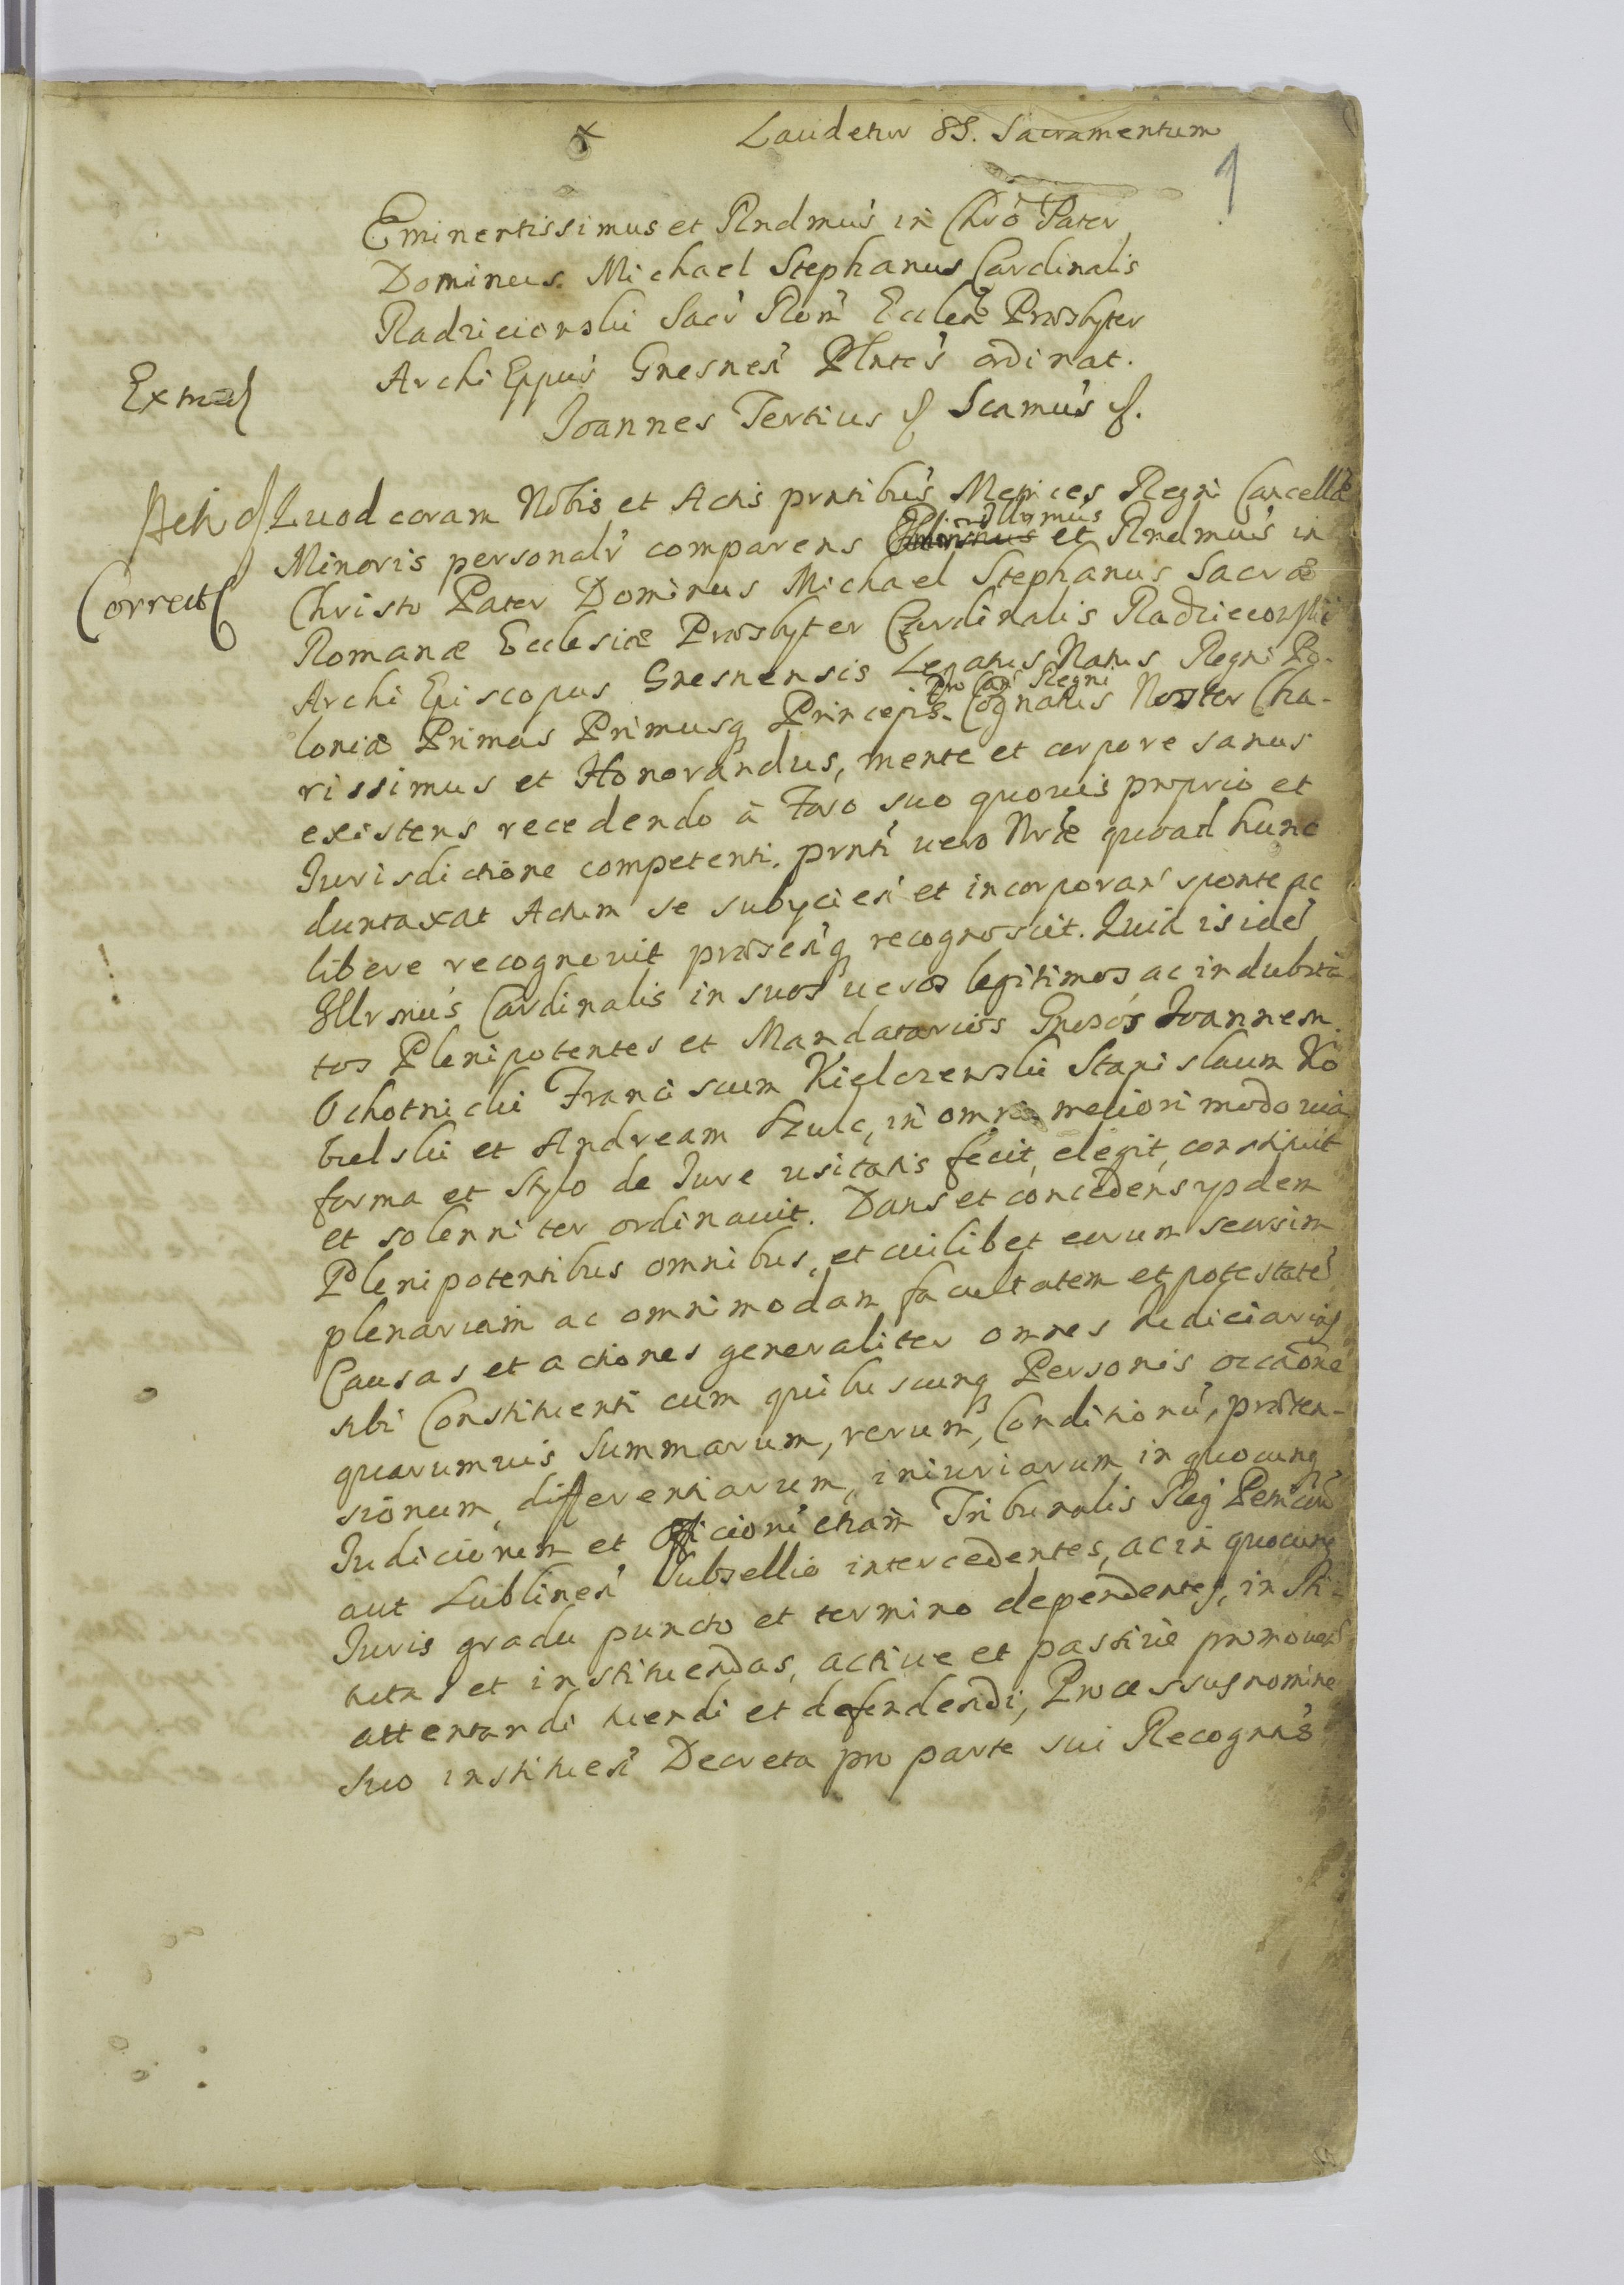 Laudetur SS. Sacramentum
1
Eminentissimus et Rndmus in Chro Pater
Dominus Michael Stephanus Cardinalis
Radzieiowski Sacr Rom Ecclae Praesbyter
Archi Eppus Gnesnen Plntes ordinat.
Extrad
Joannes Tertius Scamus
Quod coram Nobis et Actis prntibus Metrices Regni Cancellae
Minoris personalr comparens Illrmus et Rndmus in
Correct
Christo Pater Dominus Michael Stephanus Sacrae
Romanae Ecclesiae Praesbyter Cardinalis Radzieiowski
Archi Episcopus Gnesnensis Legatus Natus Regni Po-
loniae Primas Primusq Princeps Pro Can Regni Cognatus Noster Cha-
rissimus et Honorandus, mente et corpore sanus
existens recedendo à Foro suo quouis proprio et
Jurisdictione competenti. prnti uero Nrae quoad hunc
duntaxat Actum se subycien et incorporan sponte ac
libere recognouit praesenq recognoscit. Quia is ide
Illrmus Cardinalis in suos ueros legitimos ac indubita
tos Plenipotentes et Mandatarios Gnrosos Joannem
Ochotnicki Franciscum Kielczewski Stanislaum Ko
bielski et Andream Szulc, in omni meliori modo uia
forma et stylo de Jure usitatis fecit, elegit, constituit
et solenniter ordinauit. Dans et concedens ysdem
Plenipotentibus omnibus, et cuilibet eorum seorsim
plenariam ac omnimodam facultatem et potestate
Causas et actiones generaliter omnes Judiciarias
sibi Constituenti cum quibuscunq Personis occaone
quarumuis Summarum, rerum, Conditionu, praeten-
sionum, differentiarum, iniuriarum in quocunq
Judiciorum et Officiorú etiam Tribunalis Reg
aut Lublinen Subsellio intercedentes, ac in quocunq
Juris gradu puncto et termino dependentes, insti-
tutas et instituendas, actiue et passiue promouen
attentandi tuendi et defendendi, Processus nomine
suo instituen Decreta pro parte sui Recognis